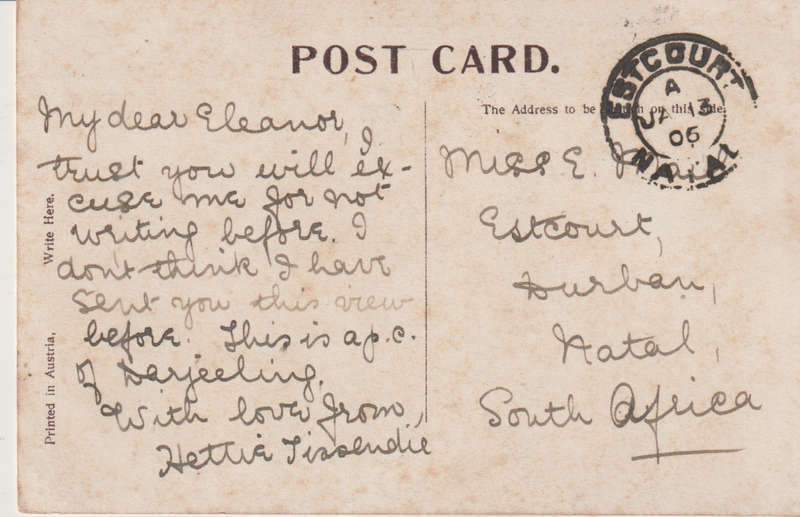 POST CARD.
The Address to be on this side.
Write Here.
Printed in Austria,
My dear Eleanor, I
trust you will ex-
cuse me for not
writing before. I
don't think I have
sent you this view
before. This is a p.c.
of Darjeeling.
With love from,
Hettie Tissendie
Miss E.
Estcourt,
Durban,
Natal,
South Africa
ESTCOURT
A
JA 13
06
NATAL